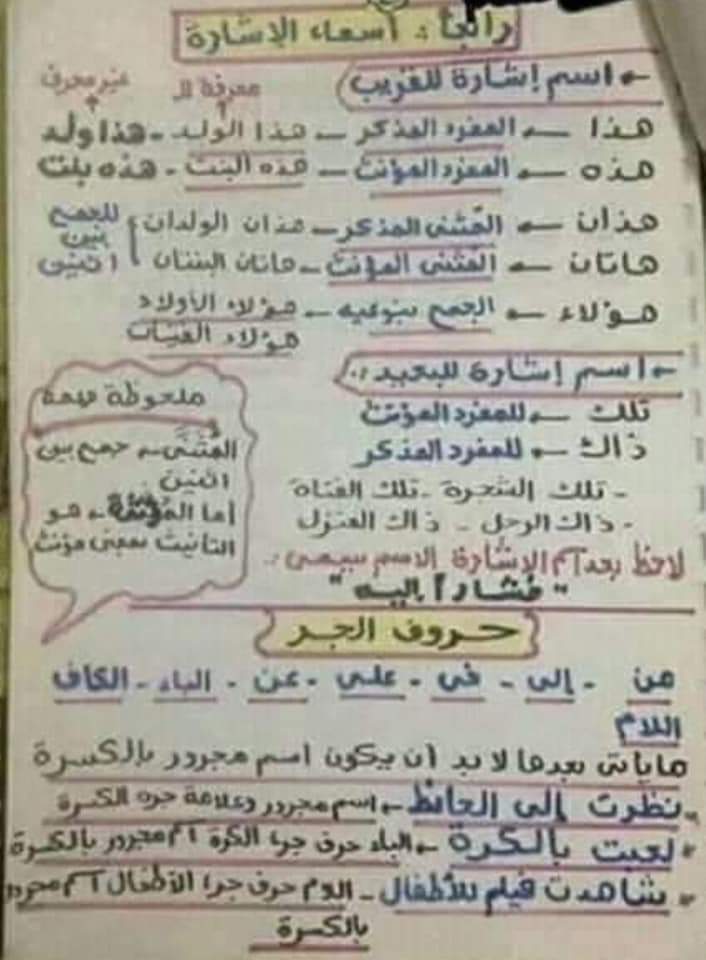 رابعاً : أسماء الإشارة
← اسم إشارة للقريب
معرفة بال
غير معرف
هذا ← المفرد المذكر – هذا الولد - هذا ولد
هذه ← المفرد المؤنث – هذه البنت - هذه بنت
هذان ← المثنى المذكر – هذان الولدان
هاتان ← المثنى المؤنث – هاتان البنتان
للجمع
بين
اثنين
هؤلاء ← الجمع بنوعيه – هؤلاء الأولاد
هؤلاء الفتيات
← اسم إشارة للبعيد :.
تلك ← للمفرد المؤنث
ذاك ← للمفرد المذكر
- تلك الشجرة - تلك الفتاة
- ذاك الرجل - ذاك المنزل
ملحوظة مهمة
المُثنَّى ← جمع بين
اثنين
أما المؤنث ← هو
التأنيث بمعنى مؤنث
لاحظ بعد اسم الإشارة الاسم يسمى :.
" مُشاراً إليه "
حروف الجر
من - إلى - في - على - عن - الباء - الكاف
اللام
ما يأتى بعدها لا بد أن يكون اسم مجرور بالكسرة
نظرت إلى الحائط ← اسم مجرور وعلامة جره الكسرة
لعبت بالكرة ← الباء حرف جر، الكرة اسم مجرور بالكسرة
شاهدت فيلم للأطفال – اللام حرف جر، الأطفال اسم مجرور
بالكسرة